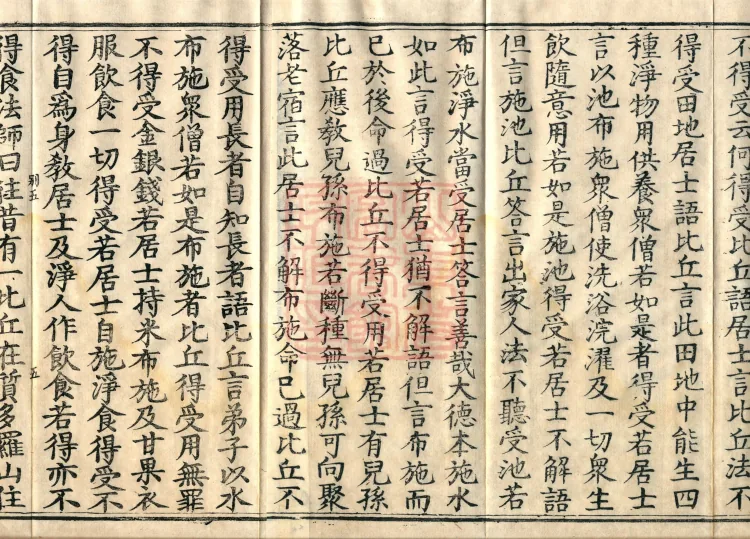 不得受云何得受比丘語居士言比丘法不
得受田地居士語比丘言此田地中能生四
種淨物用供養衆僧若如是者得受若居士
言以池布施衆僧使洗浴浣濯及一切衆生
飲隨意用若如是施池得受若居士不解語
但言施池比丘答言出家人法不聽受池若
布施淨水當受居士答言善哉大德本施水
如此言得受若居士猶不解語但言布施而
已於後命過比丘不得受用若居士有兒孫
比丘應教兒孫布施若斷種無兒孫可向聚
落老宿言此居士不解布施命已過比丘不
得受用長者自知長者語比丘言弟子以水
布施衆僧若如是布施者比丘得受用無罪
不得受金銀錢若居士持米布施及甘果衣
服飲食一切得受若居士自施淨食得受不
得自爲身教居士及淨人作飲食若得亦不
別五 五
得食法師曰往昔有一比丘在質多羅山住